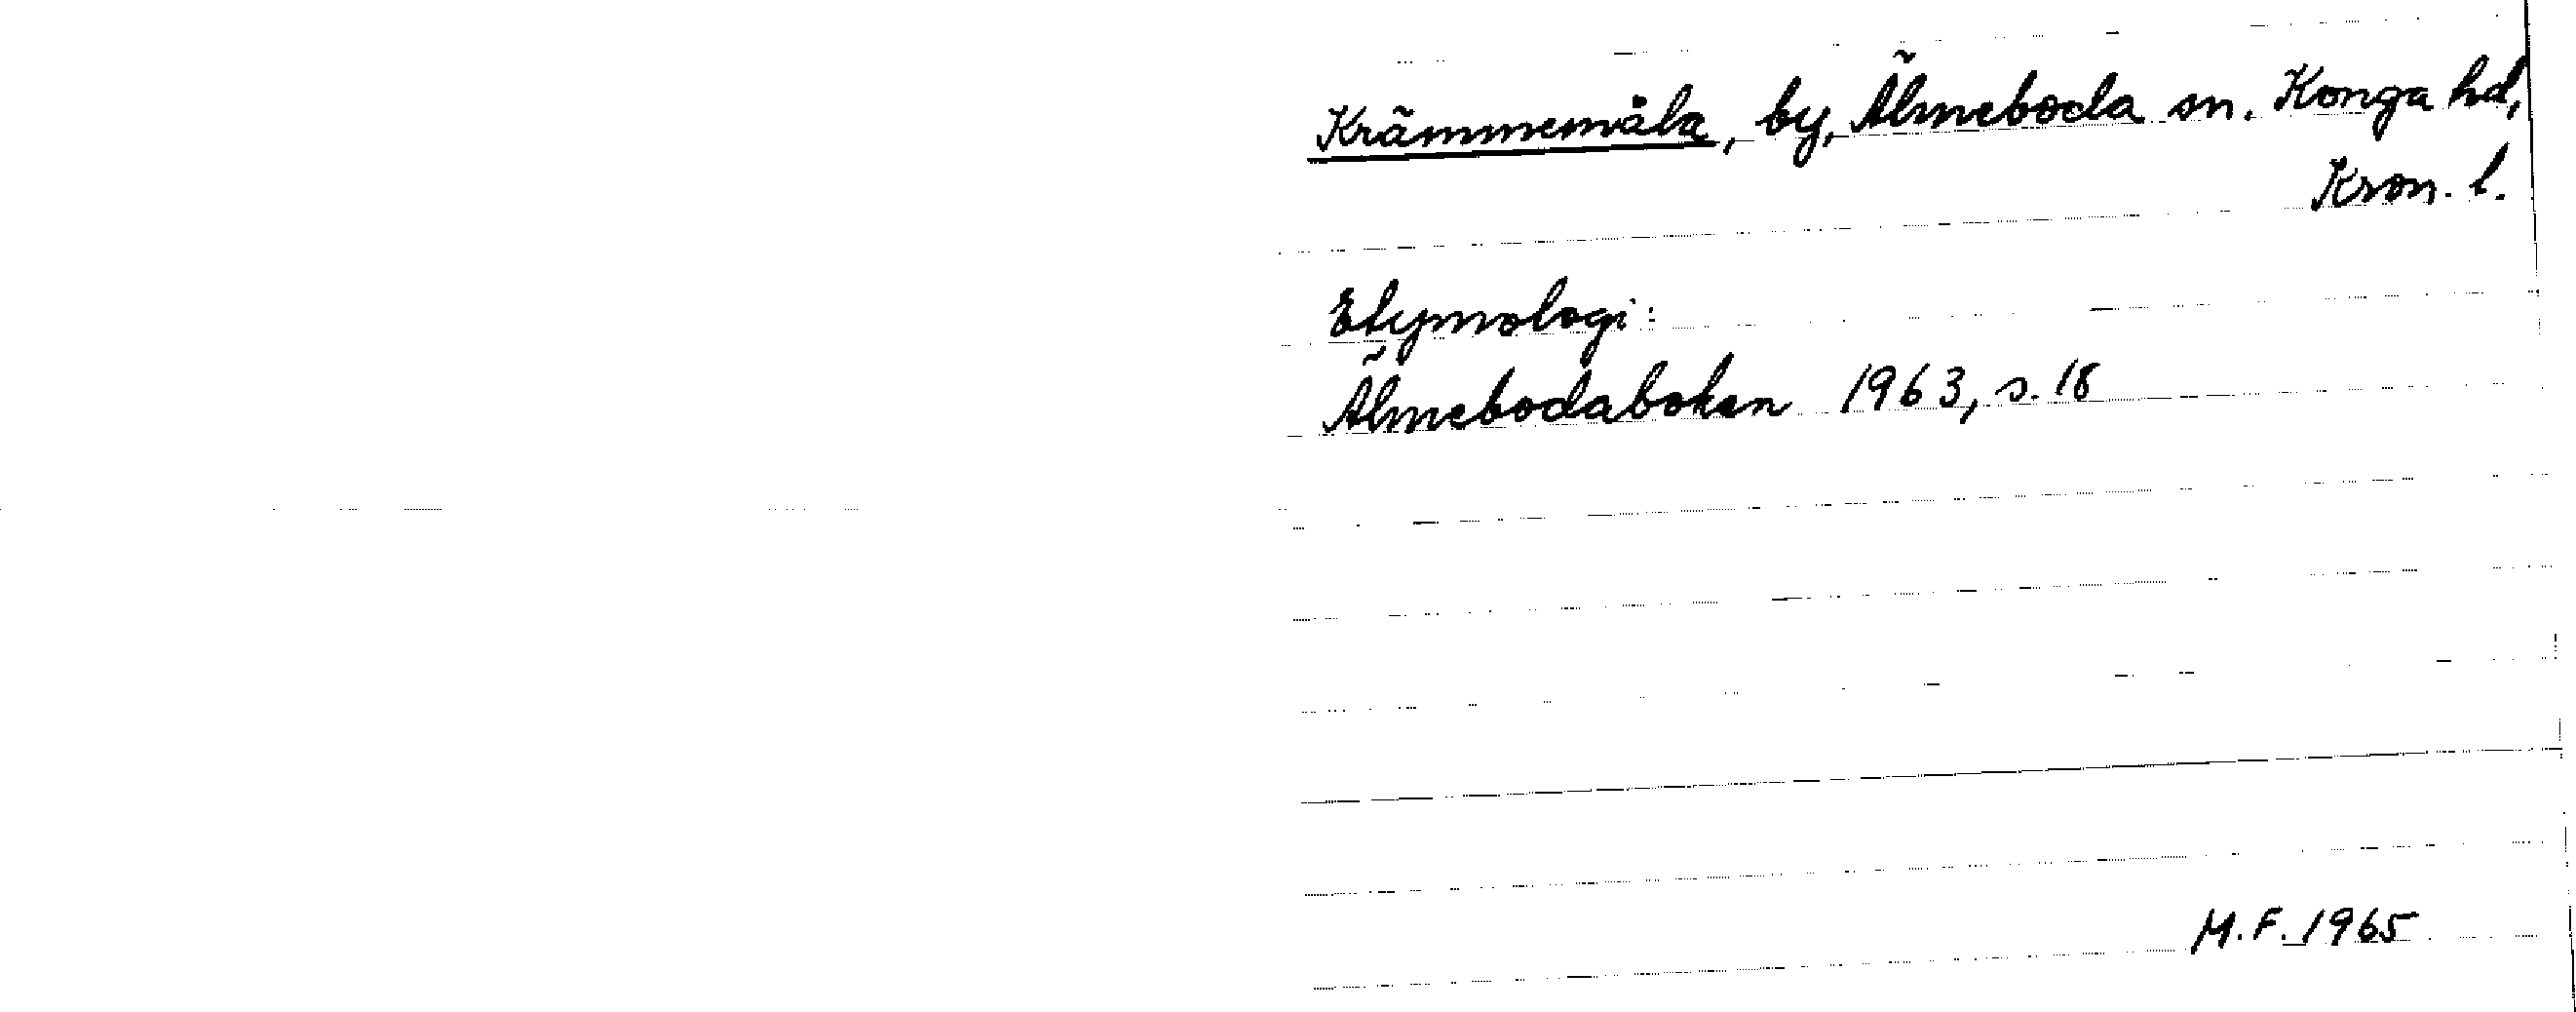 Krämmemåla, by, Älmeboda sn. Konga hd,
Kron. l.
Etymologi:
Älmebodaboken 1963, s. 18
M.F. 1965